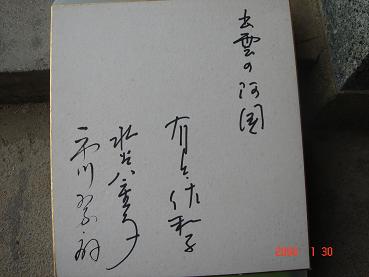 出雲の阿国
有吉佐和子
水谷八重子
市川翠扇
2006 1 30